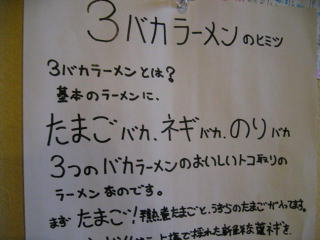 3バカラーメンのヒミツ
3バカラーメンとは?
基本のラーメンに、
たまごバカ、ネギバカ、のりバカ
3つのバカラーメンのおいしいトコ取りの
ラーメンなのです。
まず たまご! 半熟煮たまごと、うずらのたまごが入ってます。
上場で採れた新鮮な葉ネギを